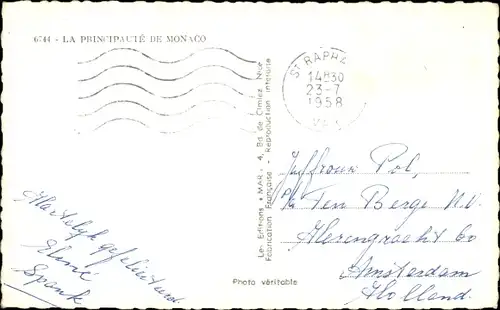 6744 - LA PRINCIPAUTÉ DE MONACO
St RAPHA
14H30
23-7
1958
VAR
Les Editions "MAR" - 4, Bd de Cimiez, Nice
Fabrication Française - Reproduction interdite
Juffrouw Pol,
P/a Ten Berge N.V.
Herengracht 60
Amsterdam
Holland.
Hartelijk gefeliciteerd
Spank
Photo véritable